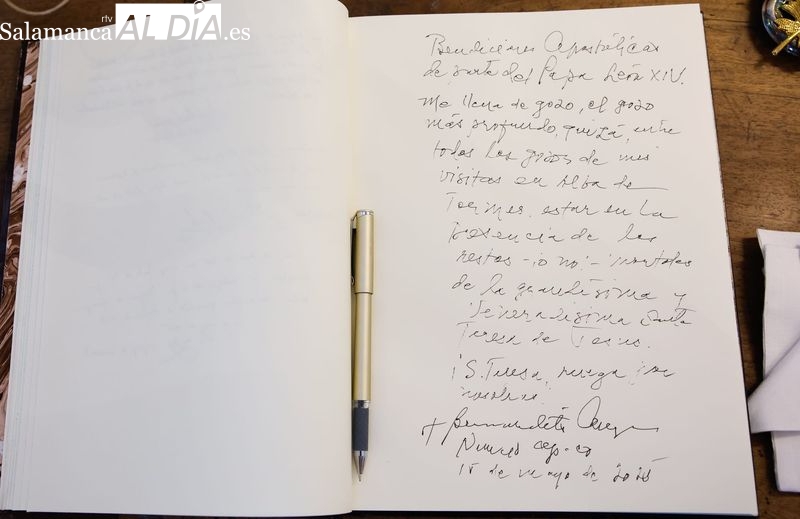 rtv
SalamancaALDÍA.es
Bendiciones Apostólicas
de parte del Papa León XIV.
Me llena de gozo, el gozo
más profundo, quizá, entre
todos los gozos de mis
visitas en Alba de
Tormes, estar en la
presencia de los
restos -¡o no!- mortales
de la grandísima y
veneradísima Santa
Teresa de Jesús.
¡S. Teresa, ruega por
nosotros!
+ Bernardito
Nuncio
15 de mayo de 2025